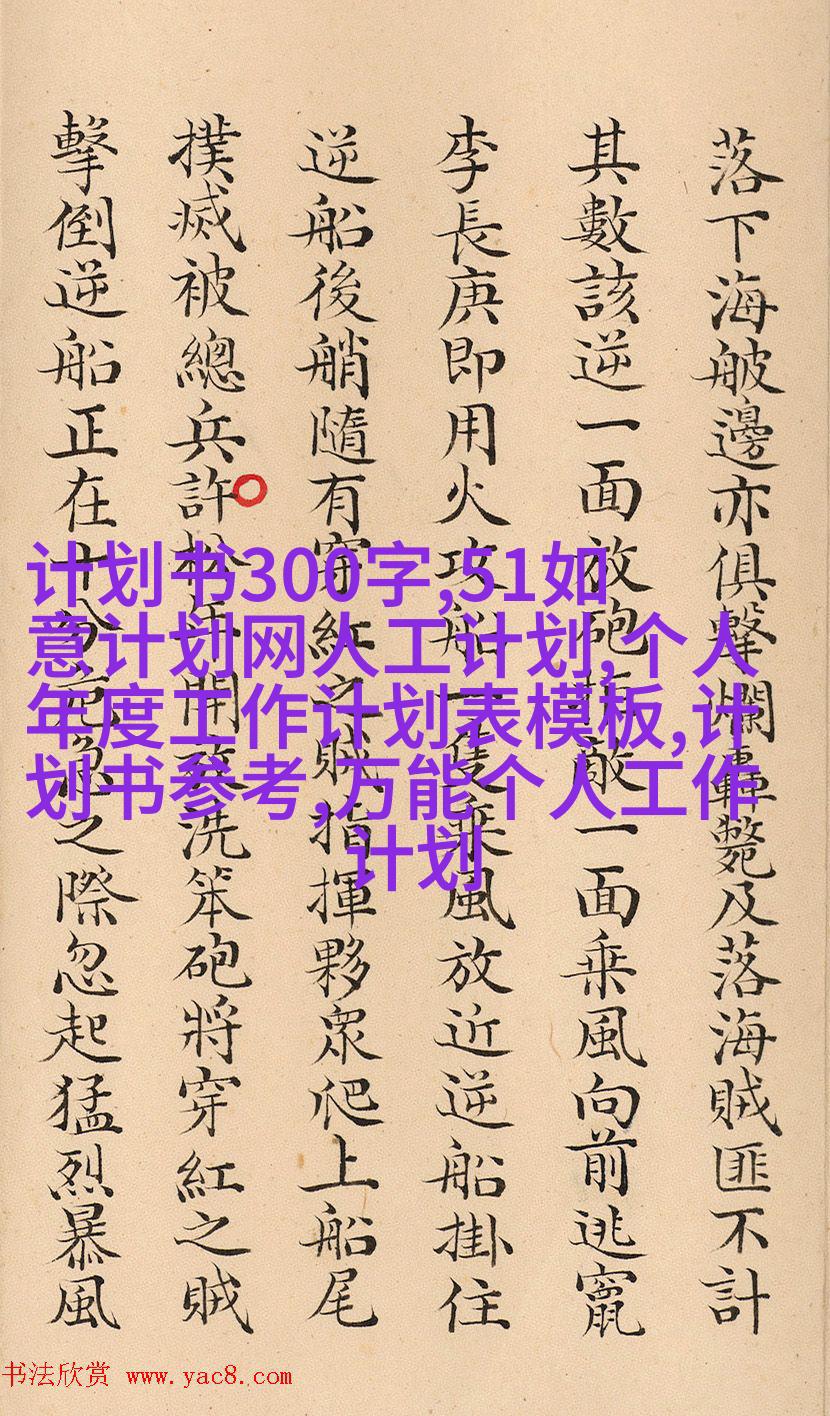 落下海邊亦俱擊爛轟斃及落海賊匪不計
其數該逆一面放砲拒敵一面乘風向前逃竄
李長庚即用火攻船一隻乘風放近逆船掛住
逆船後艄隨有穿紅之賊指揮夥衆爬上船尾
撲滅被總兵許松年開放洗笨砲將穿紅之賊
擊倒逆船正在十分危急之際忽起猛烈暴風
计划书300字,51如
意计划网人工计划,个人
年度工作计划表模板,计
划书参考,万能个人工作
计划
书法欣赏 www.yac8.com